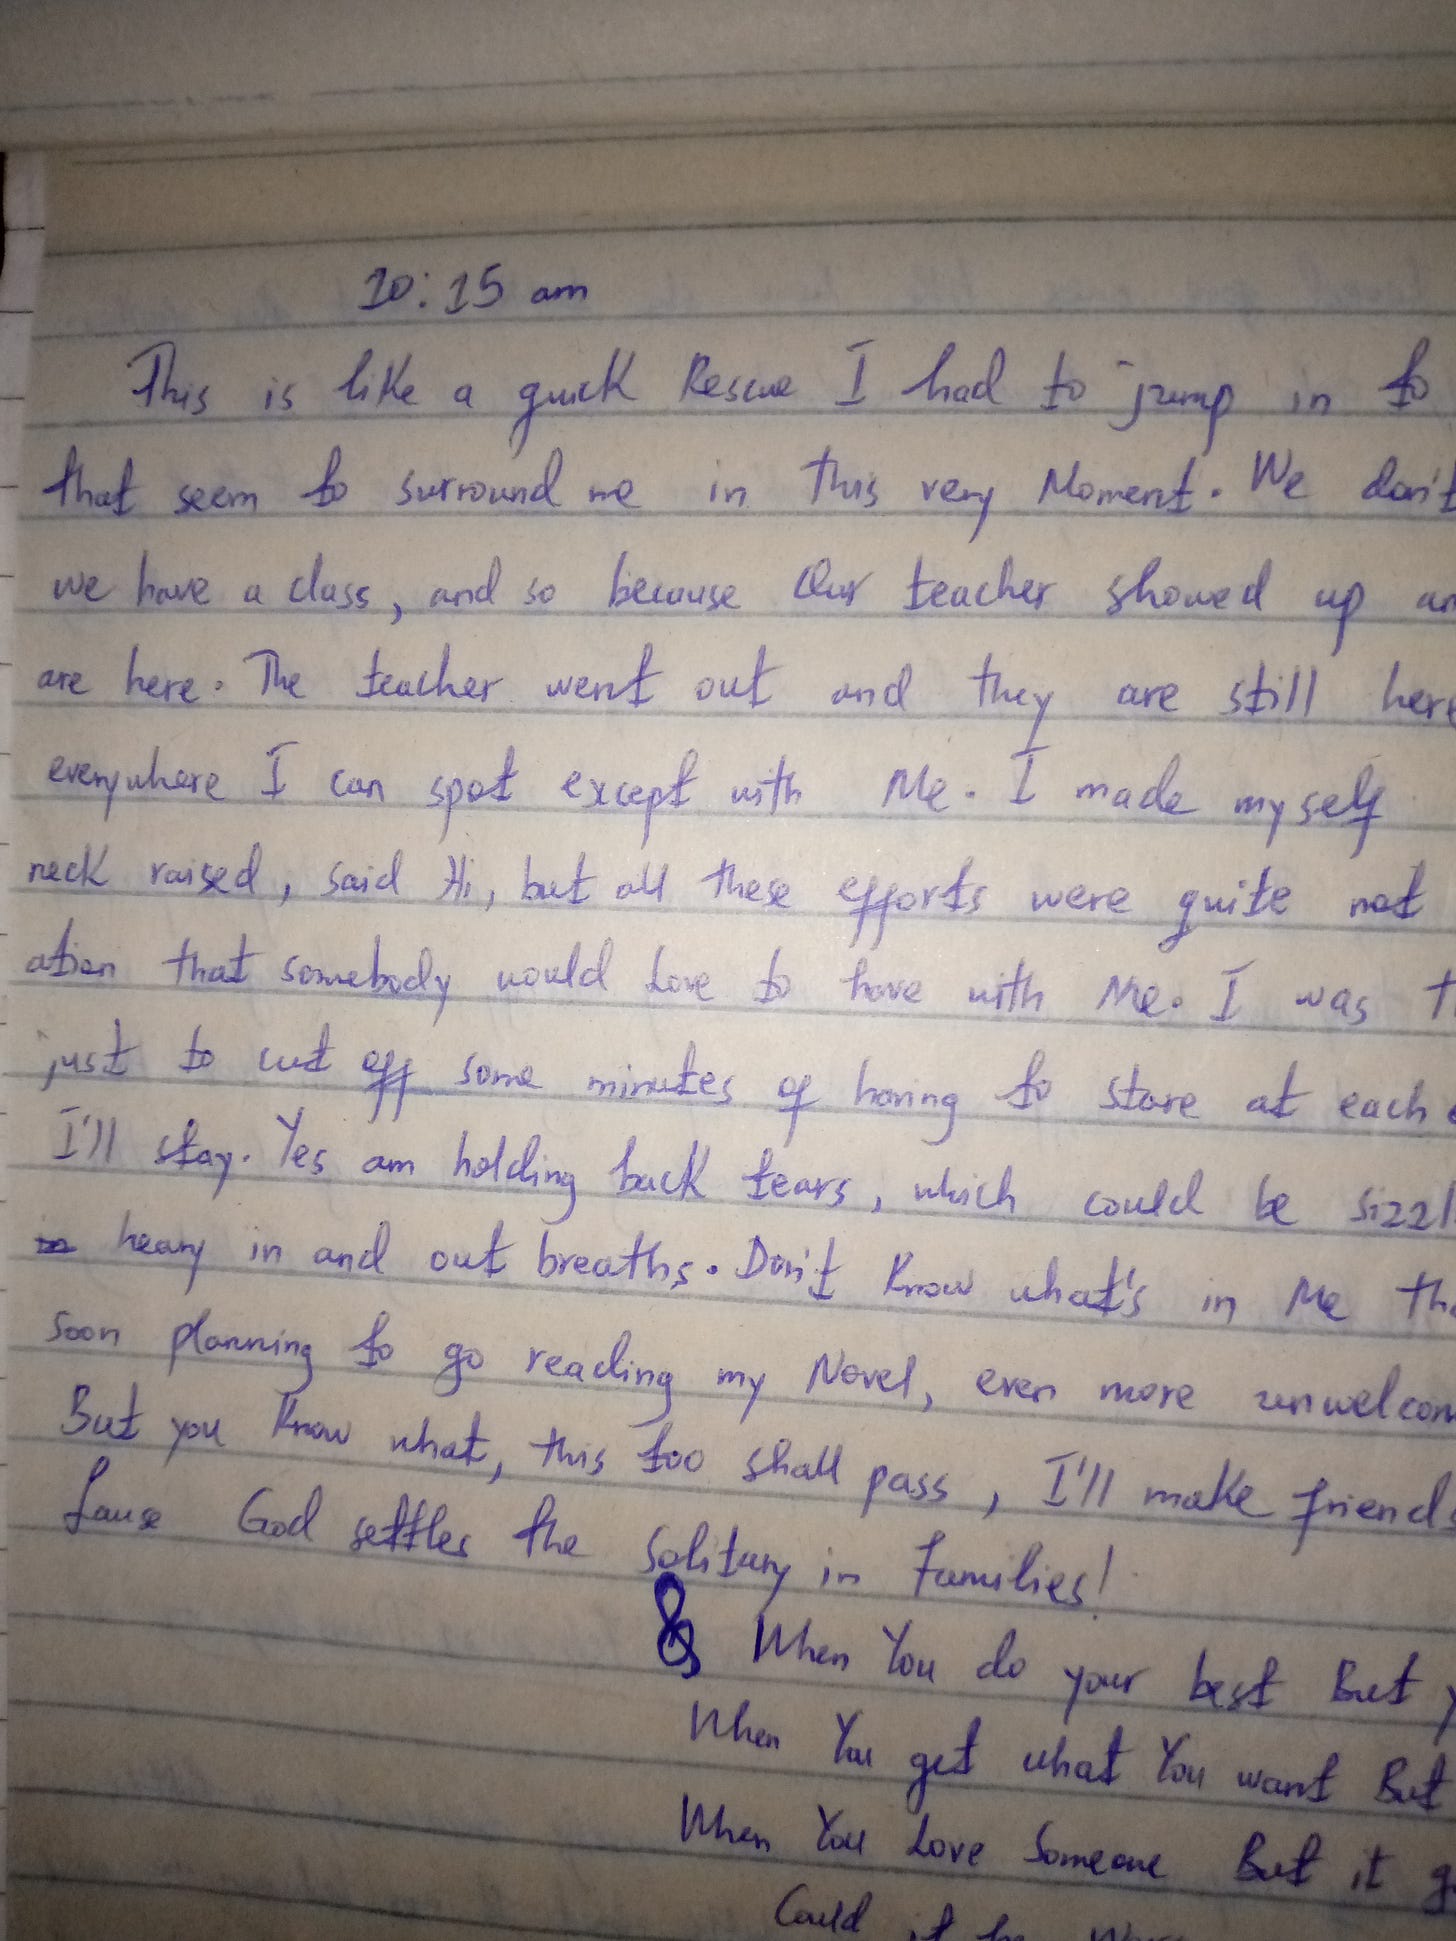 10:15 am
This is like a quick Rescue I had to jump in to
that seem to surround me in this very Moment. We don't
we have a class, and so because Our teacher showed up an
are here. The teacher went out and they are still here
everywhere I can spot except with Me. I made myself
neck raised, said Hi, but all these efforts were quite not
ation that somebody would Love to have with Me. I was t
just to cut off some minutes of having to stare at each
I'll stay. Yes am holding back tears, which could be sizzl
heavy in and out breaths. Don't Know what's in Me th
soon planning to go reading my Novel, even more unwelcom
But you Know what, this too shall pass, I'll make friends
God settles the Solitary in Families!
& When You do your best But y
When You get what You want But
When You Love Someone But it g
Could it be